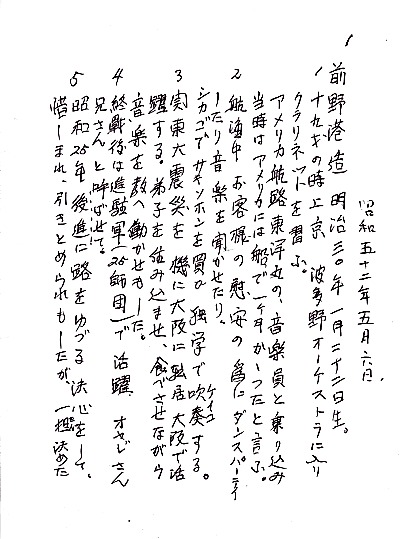 1
昭和五十二年五月六日.
前野港造 明治三〇年一月二十二日生。
1 十九才の時上京、波多野オーケストラに入り
クラリネットを習ふ。
アメリカ航路東洋丸の、音楽員と乗り込み
当時はアメリカには船で一ヶ月かゝつたと言ふ。
2 航海中お客様の慰安の為にダンスパーティ
ーしたり音楽を聞かせたり、
シカゴでサキソホンを買ひ独学で吹奏する。
3 関東大震災を機に大阪に転居大阪で活
躍する。弟子を住み込ませ、食べさせながら
音楽を教へ働かせもした。
4 終戦後は進駐軍(25師団)で活躍 オヤジさん
兄さんと呼ばせて。
5 昭和25年後進に路をゆづる決心をして、
惜しまれ、引きとめられもしたが、一担決めた